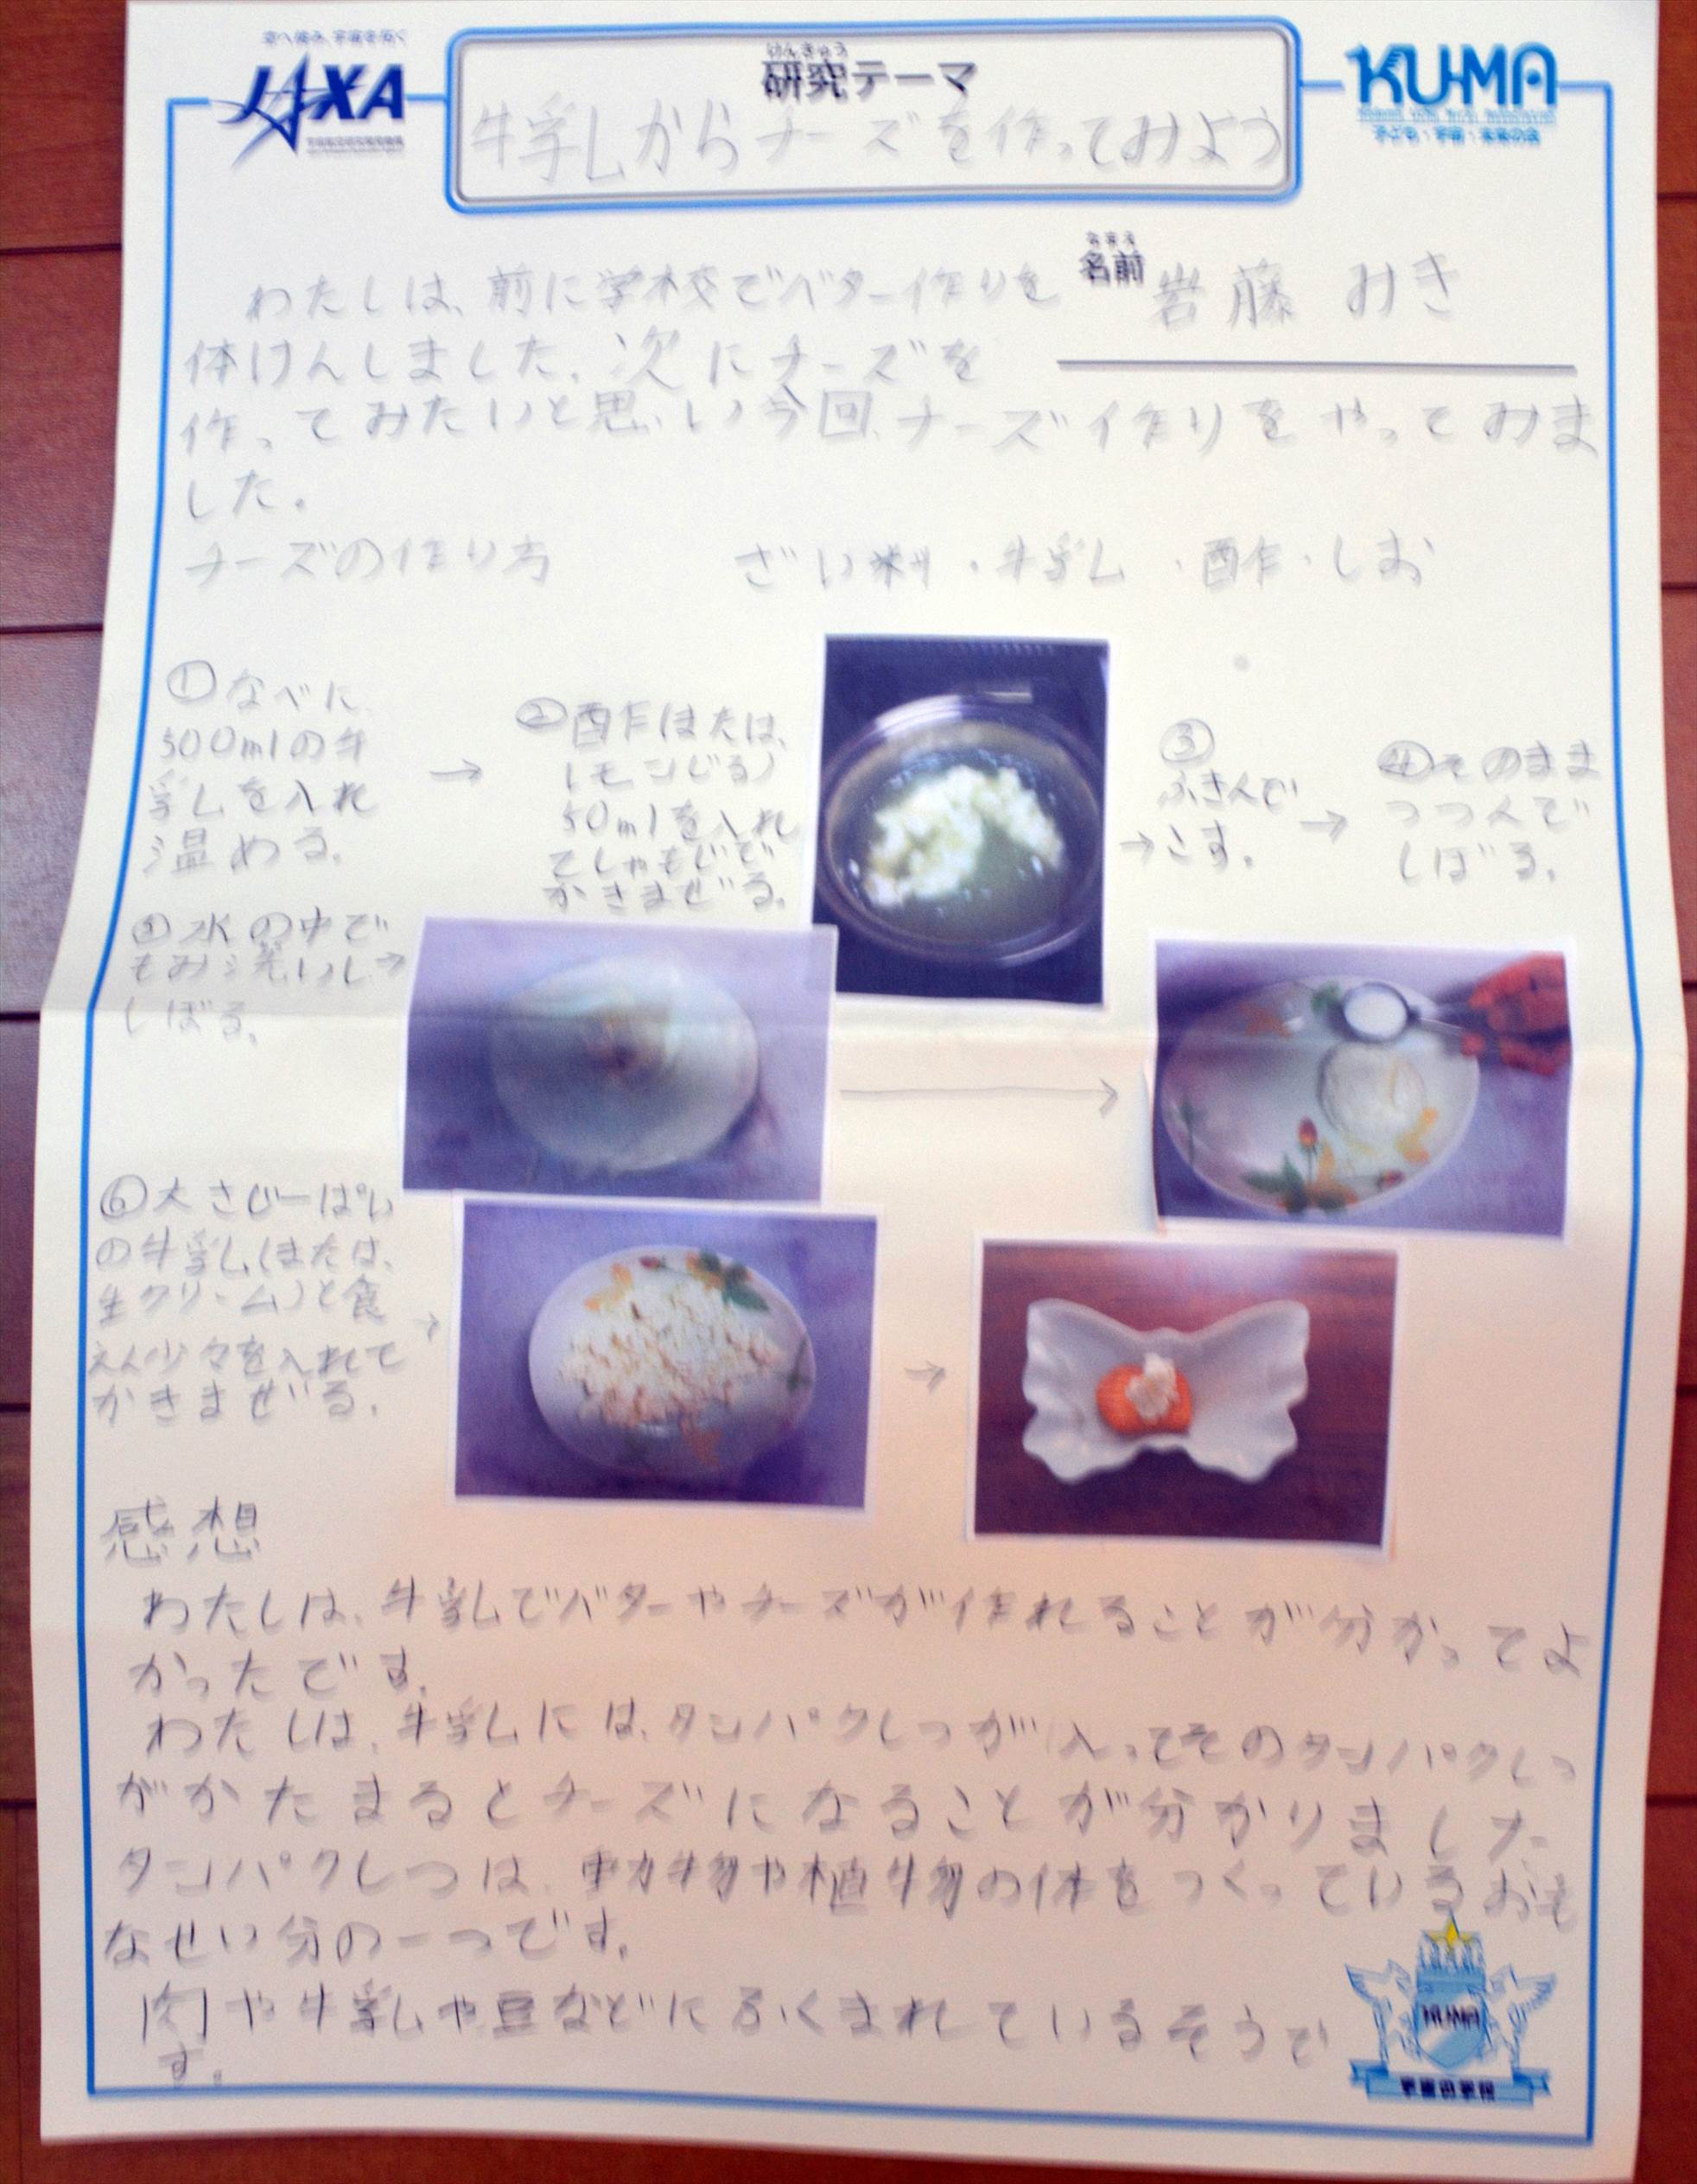 空へ挑み、宇宙を拓く
JAXA
KUMA
子ども・宇宙・未来の会
けんきゅう
研究テーマ
牛乳からチーズを作ってみよう
なまえ
名前 岩藤 みき
わたしは、前に学校でバター作りを
体けんしました。次にチーズを
作ってみたいと思い、今回、チーズ作りをやってみま
した。
チーズの作り方 ざい料・牛乳・酢・しお
①なべに
500mlの牛
乳を入れ
温める。
→
②酢(または、
レモンじる)
50mlを入れ
てしゃもじで
かきまぜる。
→
③
ふきんで
こす。
→
④そのまま
つつんで
しぼる。
⑤水の中で
もみ洗いし→
しぼる。
→
⑥大さじ一ぱい
の牛乳(または、
生クリーム)と食
えん少々を入れて
かきまぜる。
→
→
感想
わたしは、牛乳でバターやチーズが作れることが分かってよ
かったです。
わたしは、牛乳には、タンパクしつが入ってそのタンパクしつ
がかたまるとチーズになることが分かりました。
タンパクしつは、動物や植物の体をつくっているおも
なせい分の一つです。
肉や牛乳や豆などにふくまれているそうで
す。
KUMA
宇宙の学校